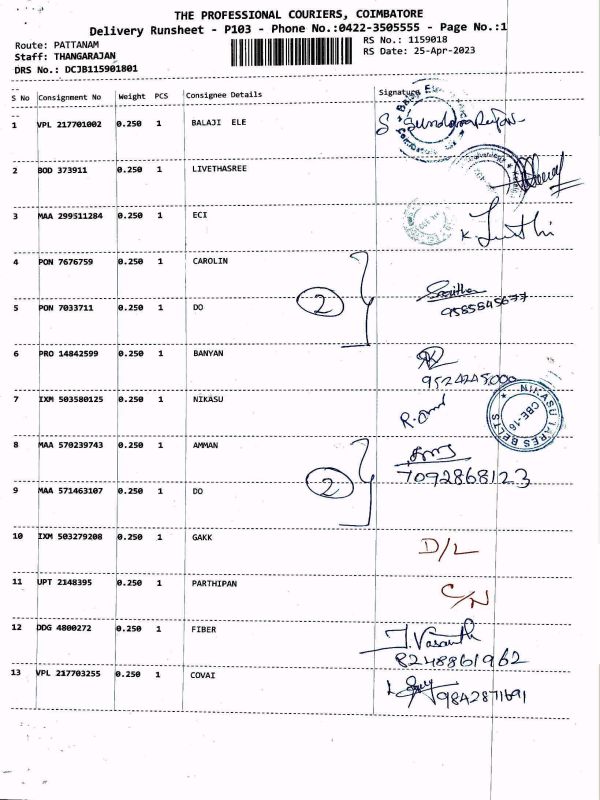 THE PROFESSIONAL COURIERS, COIMBATORE
Delivery Runsheet - P103 - Phone No.:0422-3505555 - Page No.:1
Route: PATTANAM
RS No.: 1159018
Staff: THANGARAJAN
RS Date: 25-Apr-2023
DRS No.: DCJB115901801
S No Consignment No Weight PCS Consignee Details Signature
1 VPL 217701002 0.250 1 BALAJI ELE S Sundararajan
2 BOD 373911 0.250 1 LIVETHASREE
3 MAA 299511284 0.250 1 ECI K.
4 PON 7676759 0.250 1 CAROLIN
2
5 PON 7033711 0.250 1 DO 9585845677
6 PRO 14842599 0.250 1 BANYAN
9524245000
7 IXM 503580125 0.250 1 NIKASU R. NIKASU TAPES BELTS CBE-16
8 MAA 570239743 0.250 1 AMMAN
7092868123
2
9 MAA 571463107 0.250 1 DO
10 IXM 503279208 0.250 1 GAKK D/L
11 UPT 2148395 0.250 1 PARTHIPAN C/N
12 DDG 4800272 0.250 1 FIBER J. Vasanth
8248861962
13 VPL 217703255 0.250 1 COVAI 9842871691